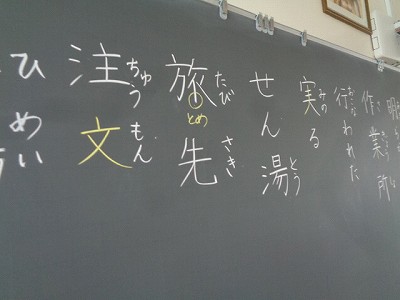 作業所
行われた
おこな
実る
みの
せん湯
とう
旅先
たび さき
とめ
注文
ちゅう もん
ひめい